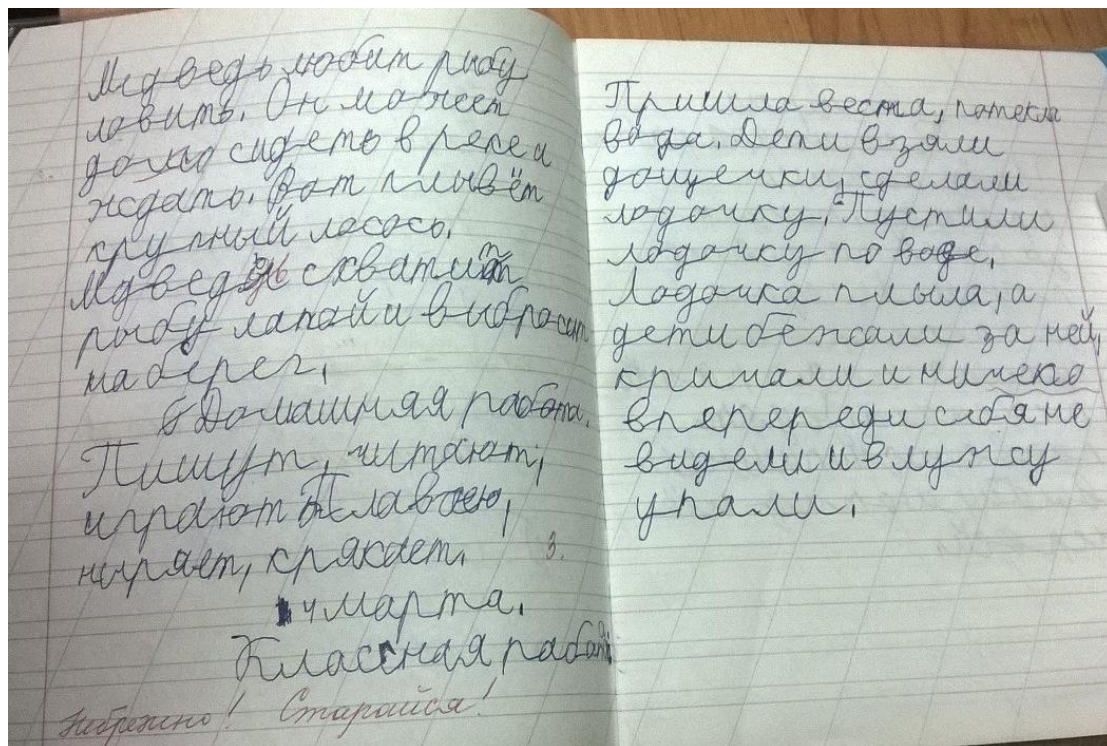 Медведь любит рыбу
ловить. Он может
долго сидеть в реке и
ждать. Вот плывёт
крупный лосось.
Медведь схватит
рыбу лапой и выбросит
на берег.
Домашняя работа.
Пишут, читают,
играют. Плавают,
ныряет, крякает.
3.
4 марта.
Классная работа.
Небрежно! Старайся!
Пришла веста, потекла
вода. Дети взяли
дощечки, сделали
лодочку. Пустили
лодочку по воде.
Лодочка плыла, а
дети бежали за ней,
кричали и ничего
впепереди себя не
видели и в лужу
упали.